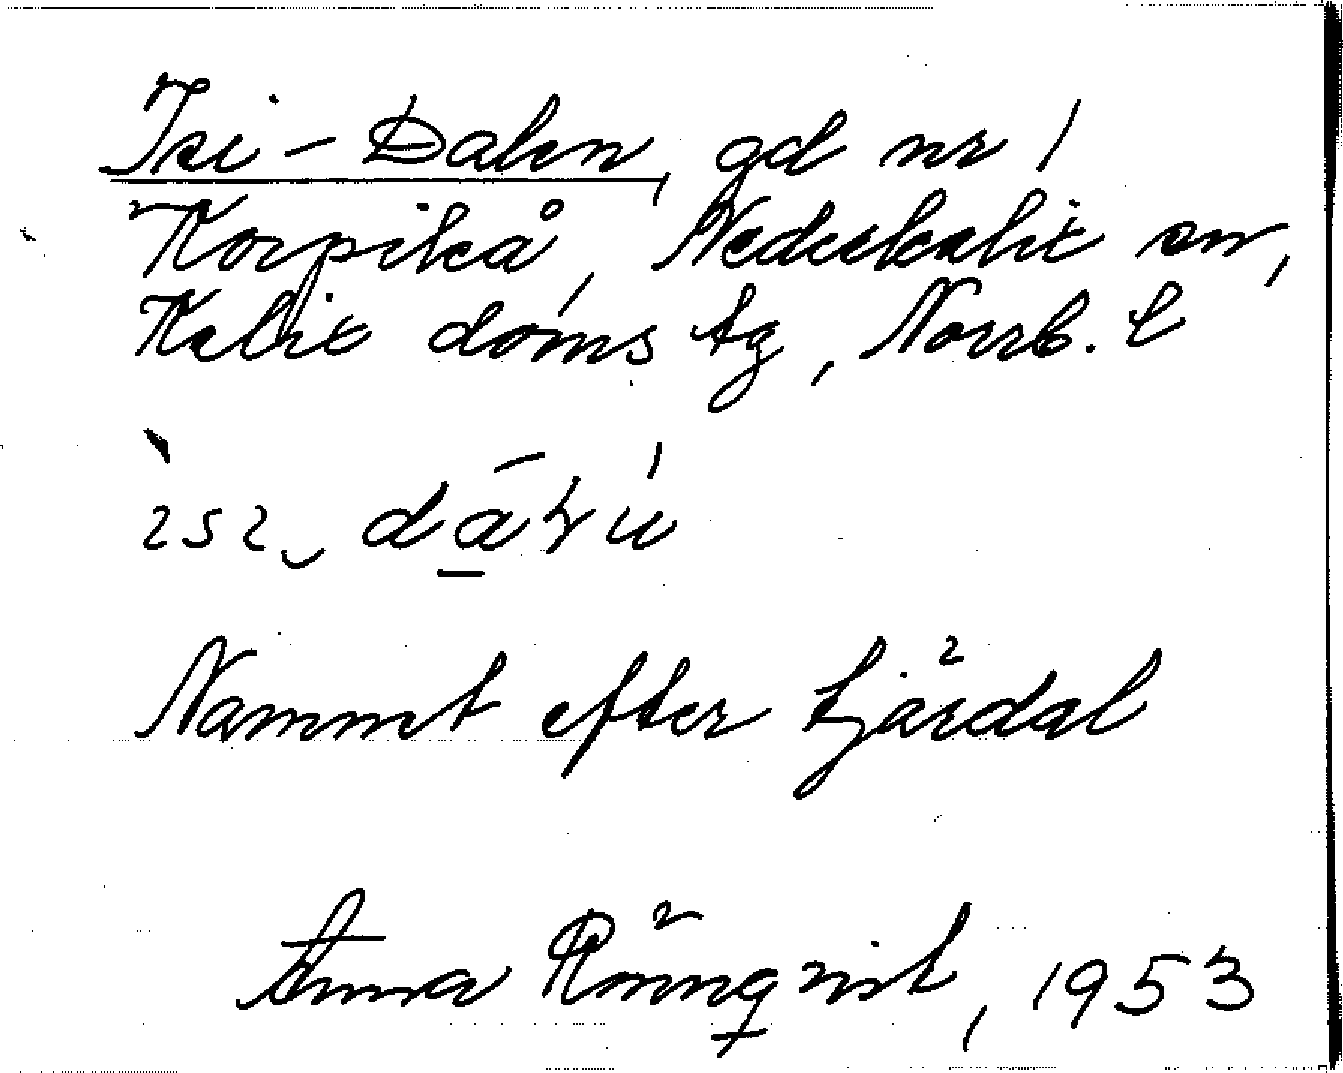 Isi-Dalen, gd nr 1
Korpikå, Nederkalix sn,
Kalix doms tg, Norrb. l
Nammt efter tjärdal
Anna Rönnqvist, 1953